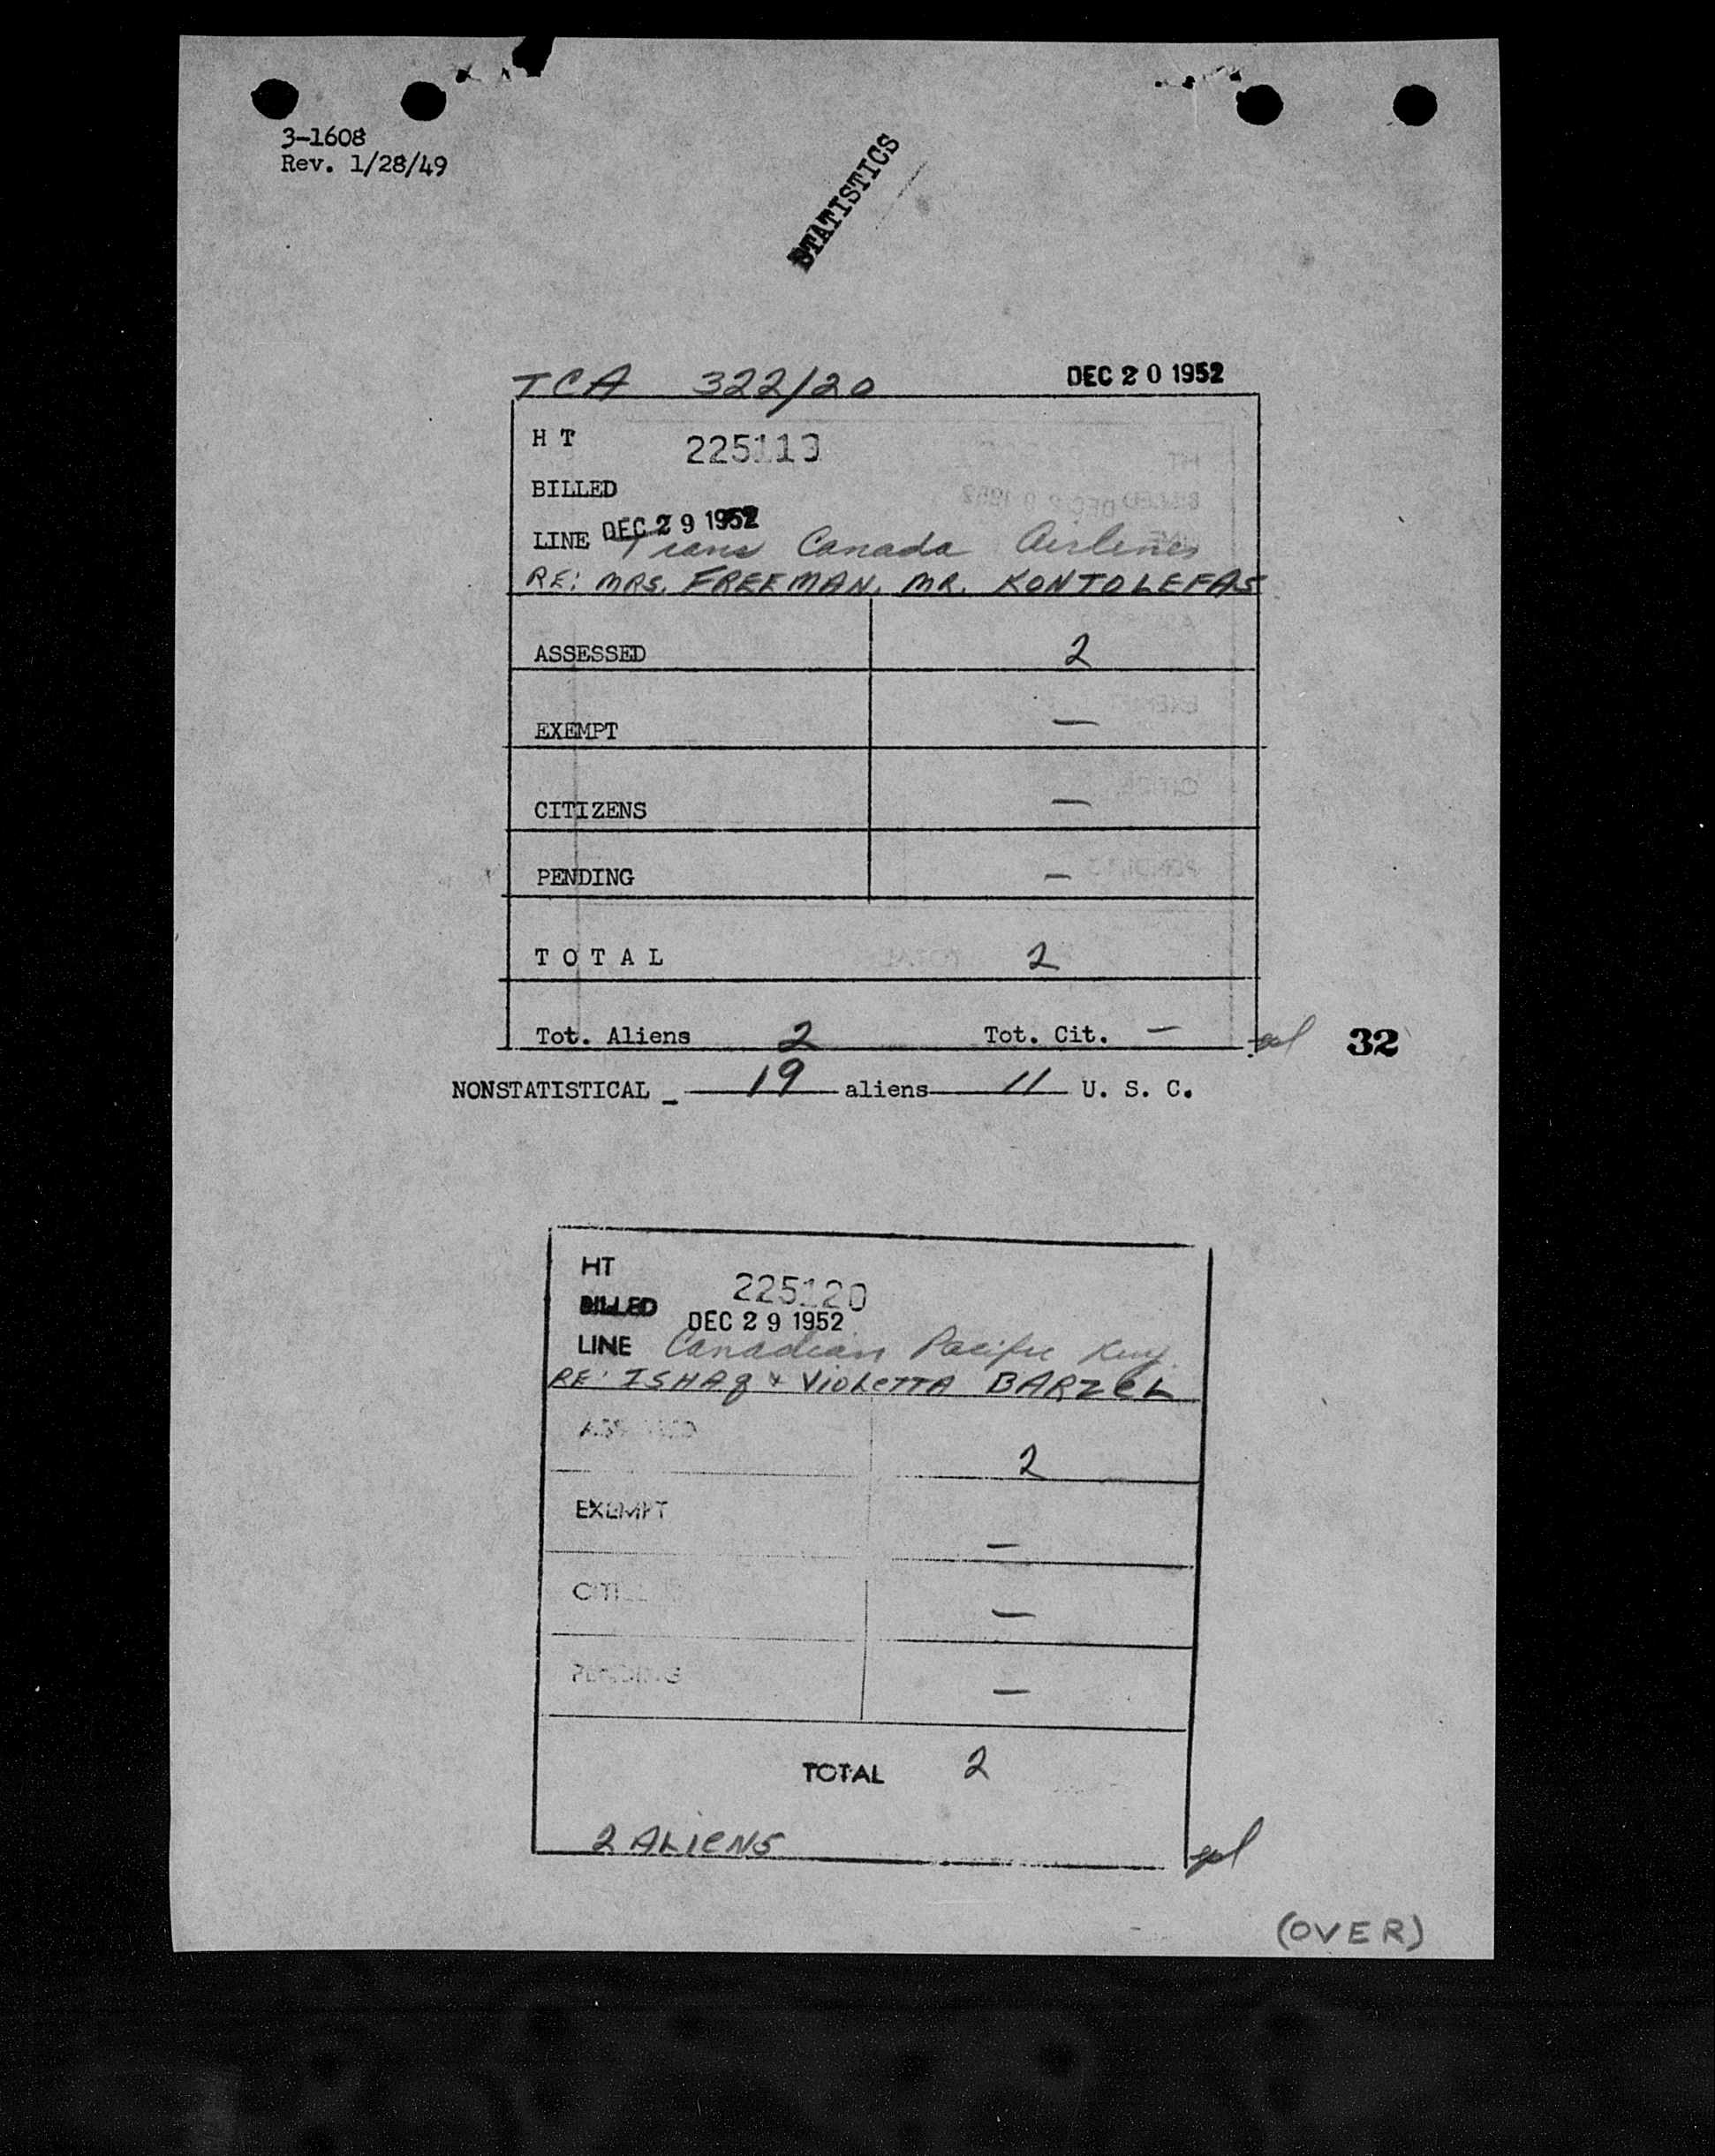 3-1608
Rev. 1/28/49
STATISTICS
TCA 322/20 DEC 20 1952
H T 225119
BILLED
DEC 29 1952
LINE Trans Canada Airlines
RE: MRS. FREEMAN, MR. KONTOLEFAS
ASSESSED 2
EXEMPT —
CITIZENS —
PENDING —
T O T A L 2
Tot. Aliens 2 Tot. Cit. —
32
NONSTATISTICAL - 19 aliens 11 U. S. C.
HT 225120
BILLED DEC 29 1952
LINE Canadian Pacific
RE: ISHAq & VioLeTTA BARZeL
ASSESSED 2
EXEMPT —
CITIZENS —
PENDING —
TOTAL 2
2 ALieNS
(OVER)